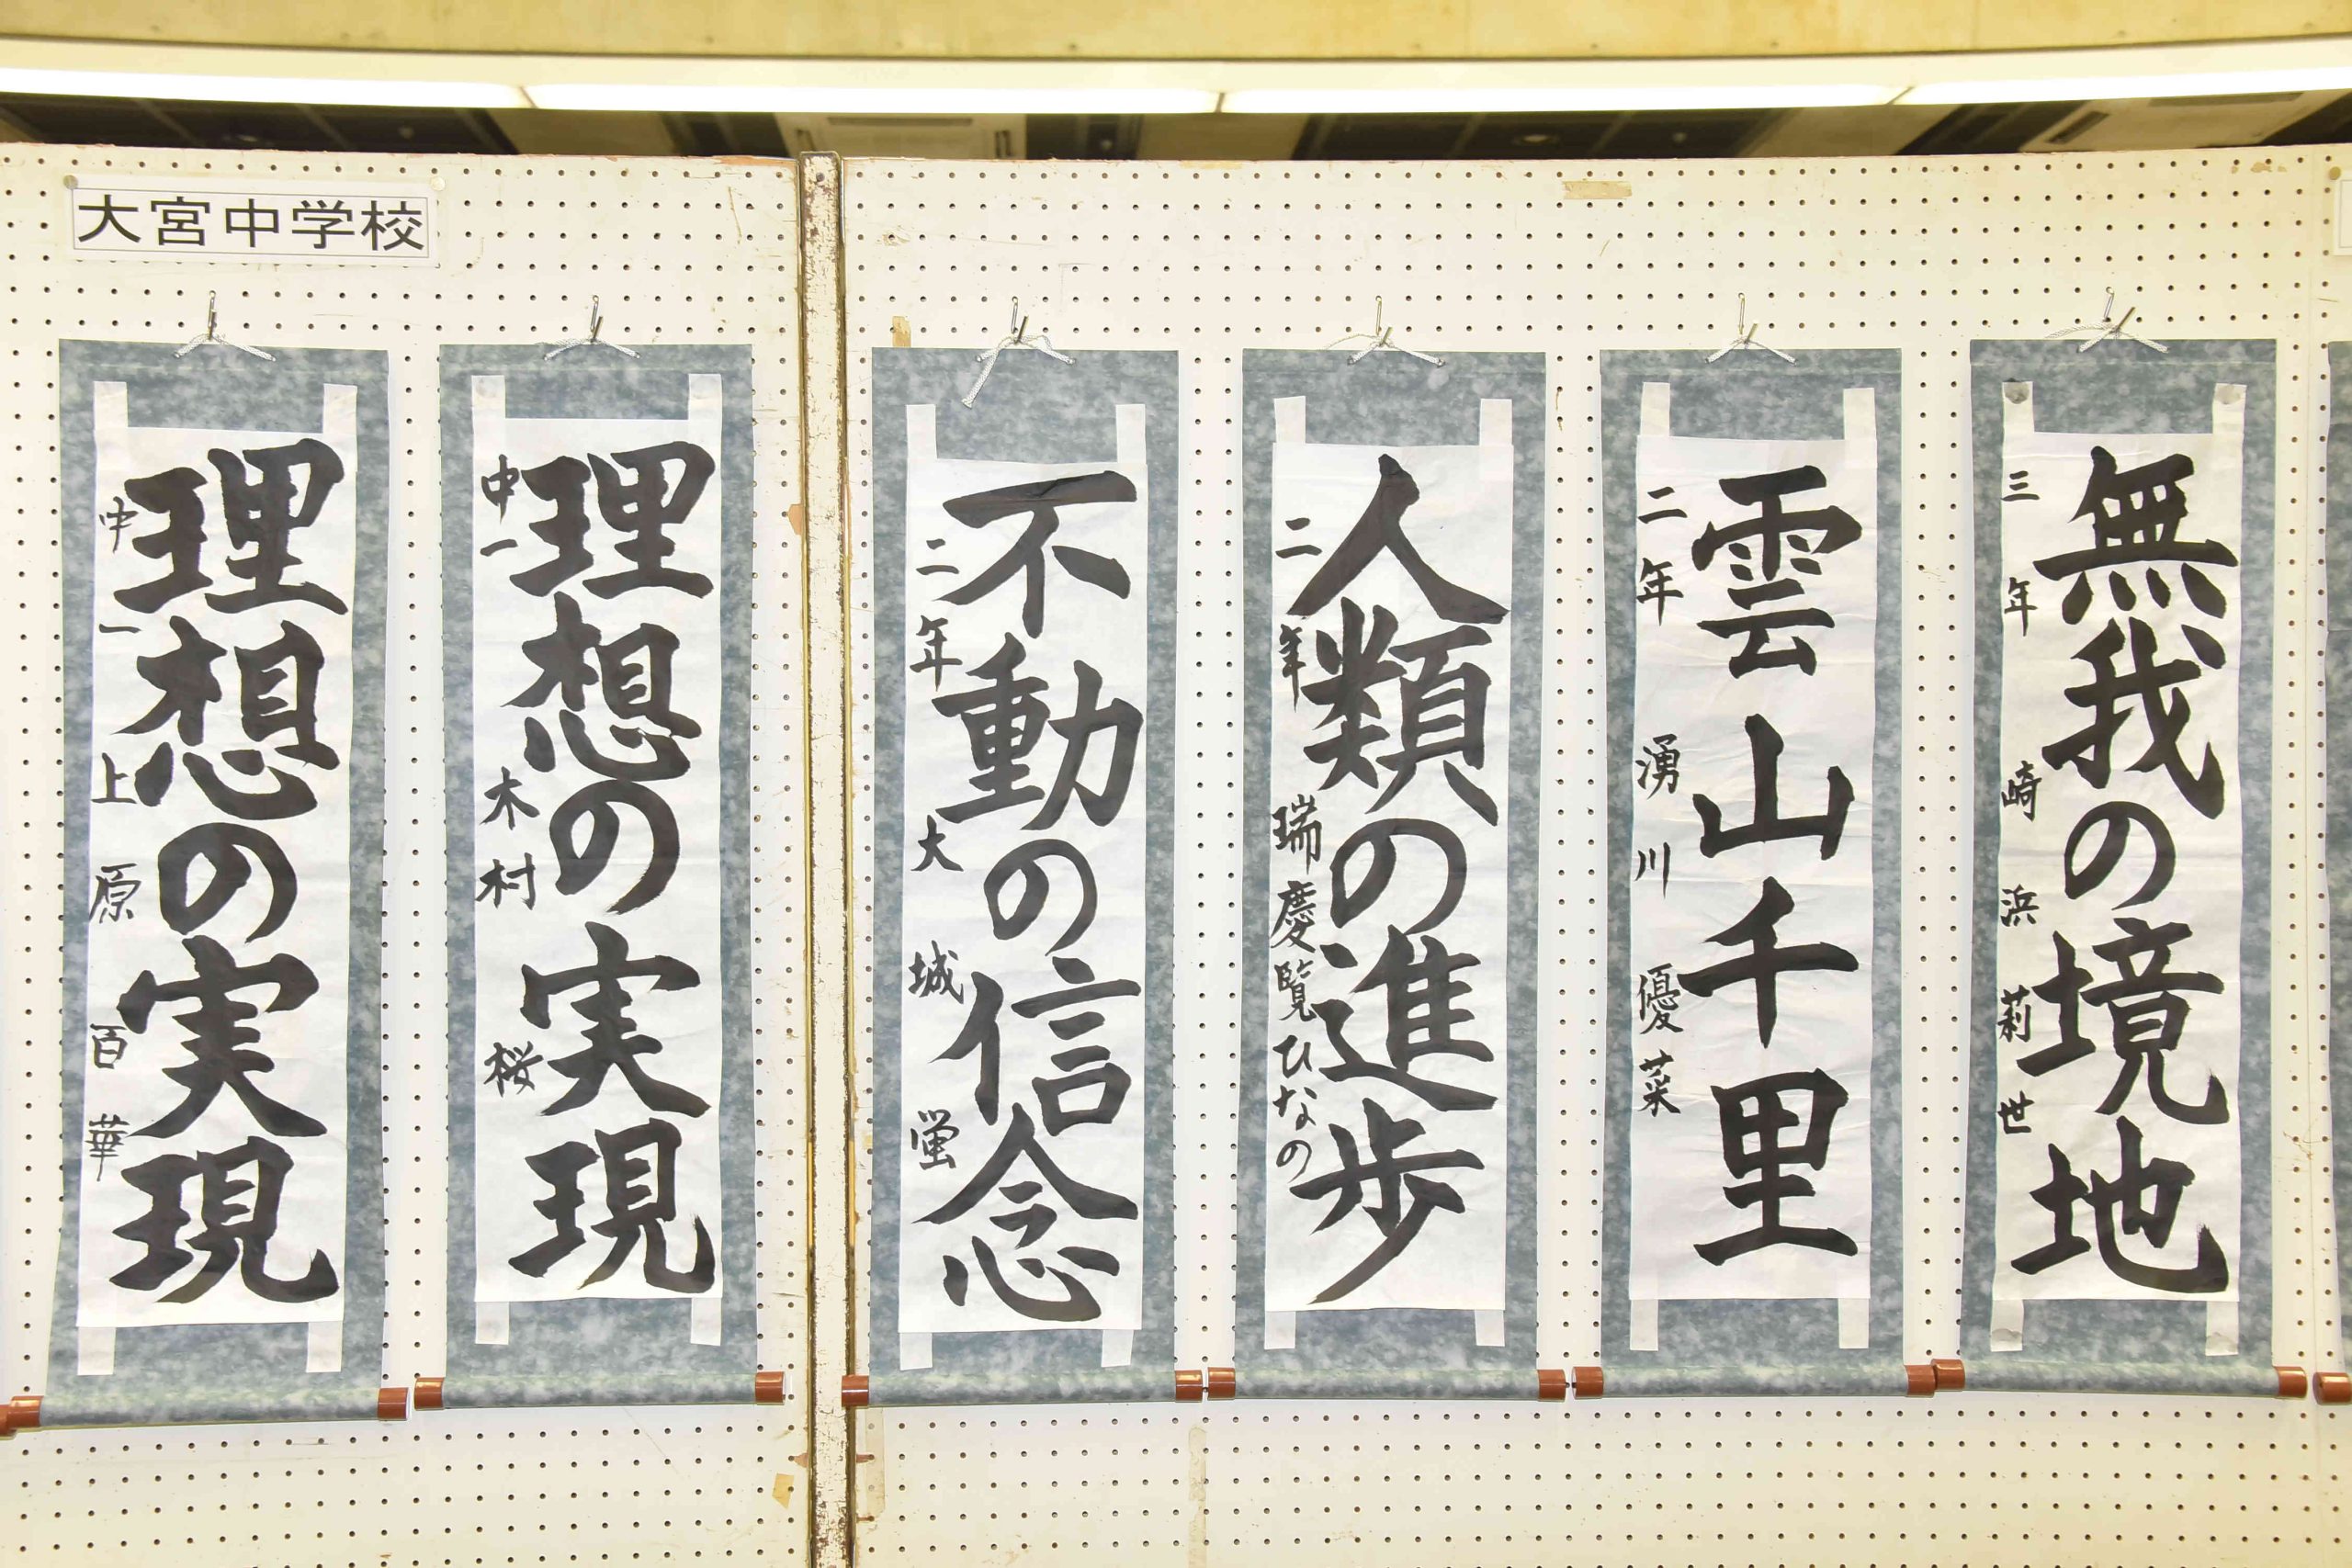 大宮中学校
理想の実現
中一 上原百華
理想の実現
中一 木村桜
不動の信念
二年 大城蛍
人類の進歩
二年 瑞慶覧ひなの
雲山千里
二年 湧川優菜
無我の境地
三年 崎浜莉世